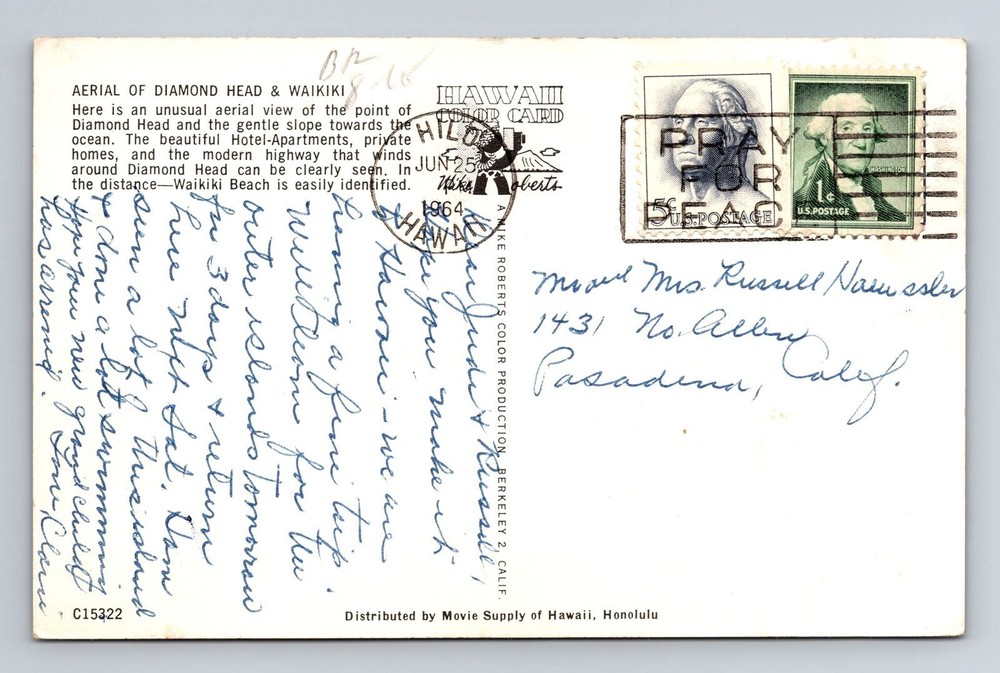 Br
AERIAL OF DIAMOND HEAD & WAIKIKI
Here is an unusual aerial view of the point of
Diamond Head and the gentle slope towards the
ocean. The beautiful Hotel-Apartments, private
homes, and the modern highway that winds
around Diamond Head can be clearly seen. In
the distance—Waikiki Beach is easily identified.
HAWAII
COLOR CARD
Mike Roberts
HILO
JUN 25
1964
HAWAII
PRAY
FOR
PEACE
5¢ U.S. POSTAGE
1¢
U.S. POSTAGE
A MIKE ROBERTS COLOR PRODUCTION, BERKELEY 2, CALIF.
Dear Judi & Russell,
Hope you make it
to Hawaii - we are
having a fine trip.
Will leave for the
outer islands tomorrow
for 3 days & return
here next Sat. Have
seen a lot of this island
& done a lot swimming
Hope your new grandchild
has arrived. Love Clara
Mr and Mrs. Russell Haeussler
1431 No. Allen
Pasadena, Calif.
C15322
Distributed by Movie Supply of Hawaii, Honolulu